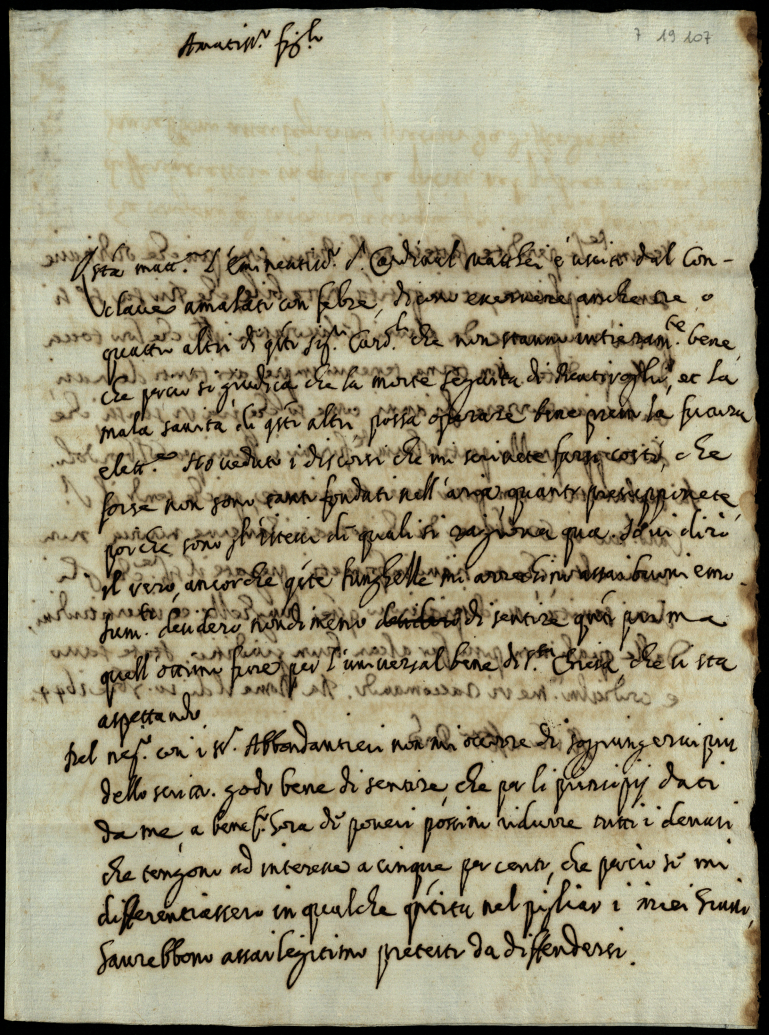 7 19 107
Amatiss.º figl.º
Q.sta matt.ª l'Eminentiss.º S.r Cardinal Mattei è uscito dal Con-
clave amalato con febre, dicono anche tre o
quattro altri di q.sti Sig.ri Card.li che non stanno intieram.te bene,
che perciò si giudica che la morte seguita di Bentivogli, et la
mala sanità di q.sti altri possa operare la futura
elett.ne. Ho veduto i discorsi che mi scrivete farsi costì, che
forse non sono tanti fondati nell'aria quanto presupponete,
perche sono gl'istessi di quali si ragiona qua. Io vi dirò
il vero, ancorche q.ste lunghelle mi assai buoni emo-
lum.ti desidero nondimeno di sentire q.to p.ª
quell'ottimo fine per l'universal bene di S.ta Chiesa, che si sta
aspettando.
Nel neg.º con i SS.ri Abbondantieri non mi occorre di soggiungervi più
dello scritto. godo bene di sentire, che per li principij dati
da me, a benef.º hora di poveri possino ridurre tutti i denari
che tengono ad interesse a cinque per cento, che perciò se mi
differentiassero in qualche q.tità nel pigliar i miei
haurebbono assai legitimo pretesti da diffendersi.